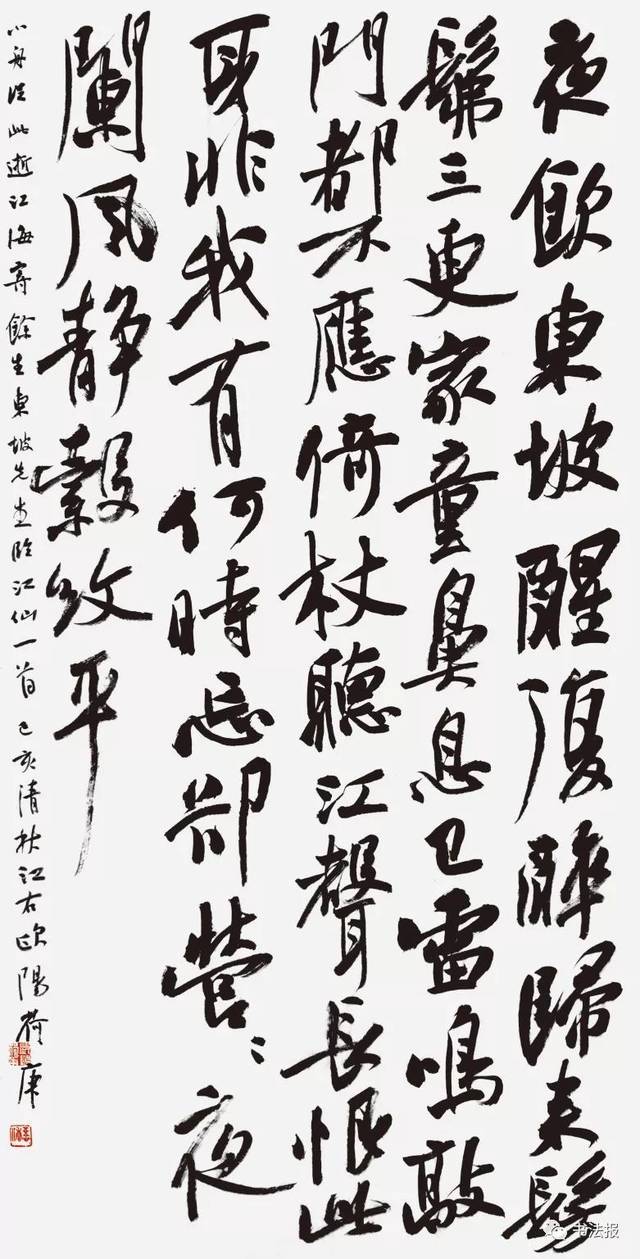 夜飲東坡醒復醉歸来髣
髴三更家童鼻息已雷鳴敲
門都不應倚杖聽江聲長恨此
身非我有何時忘卻營〻夜
闌風靜縠紋平
小舟從此逝江海寄餘生東坡先生臨江仙一首己亥清秋江右歐陽荷庚
书法报